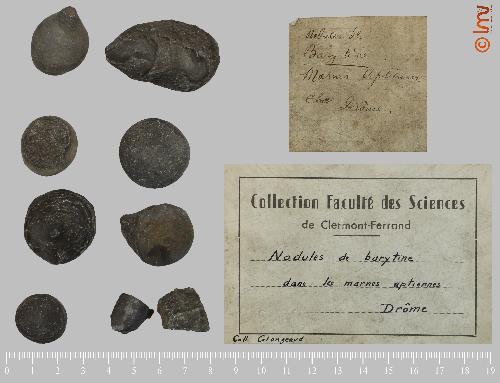 Nodules de
Barytine
Marnes Aptiennes
Drôme.
Collection Faculté des Sciences
de Clermont-Ferrand
Nodules de barytine
dans les marnes aptiennes
Drôme
Coll. Colongeaud
© lmv
0 1 2 3 4 5 6 7 8 9 10 11 12 13 14 15 16 17 18 19